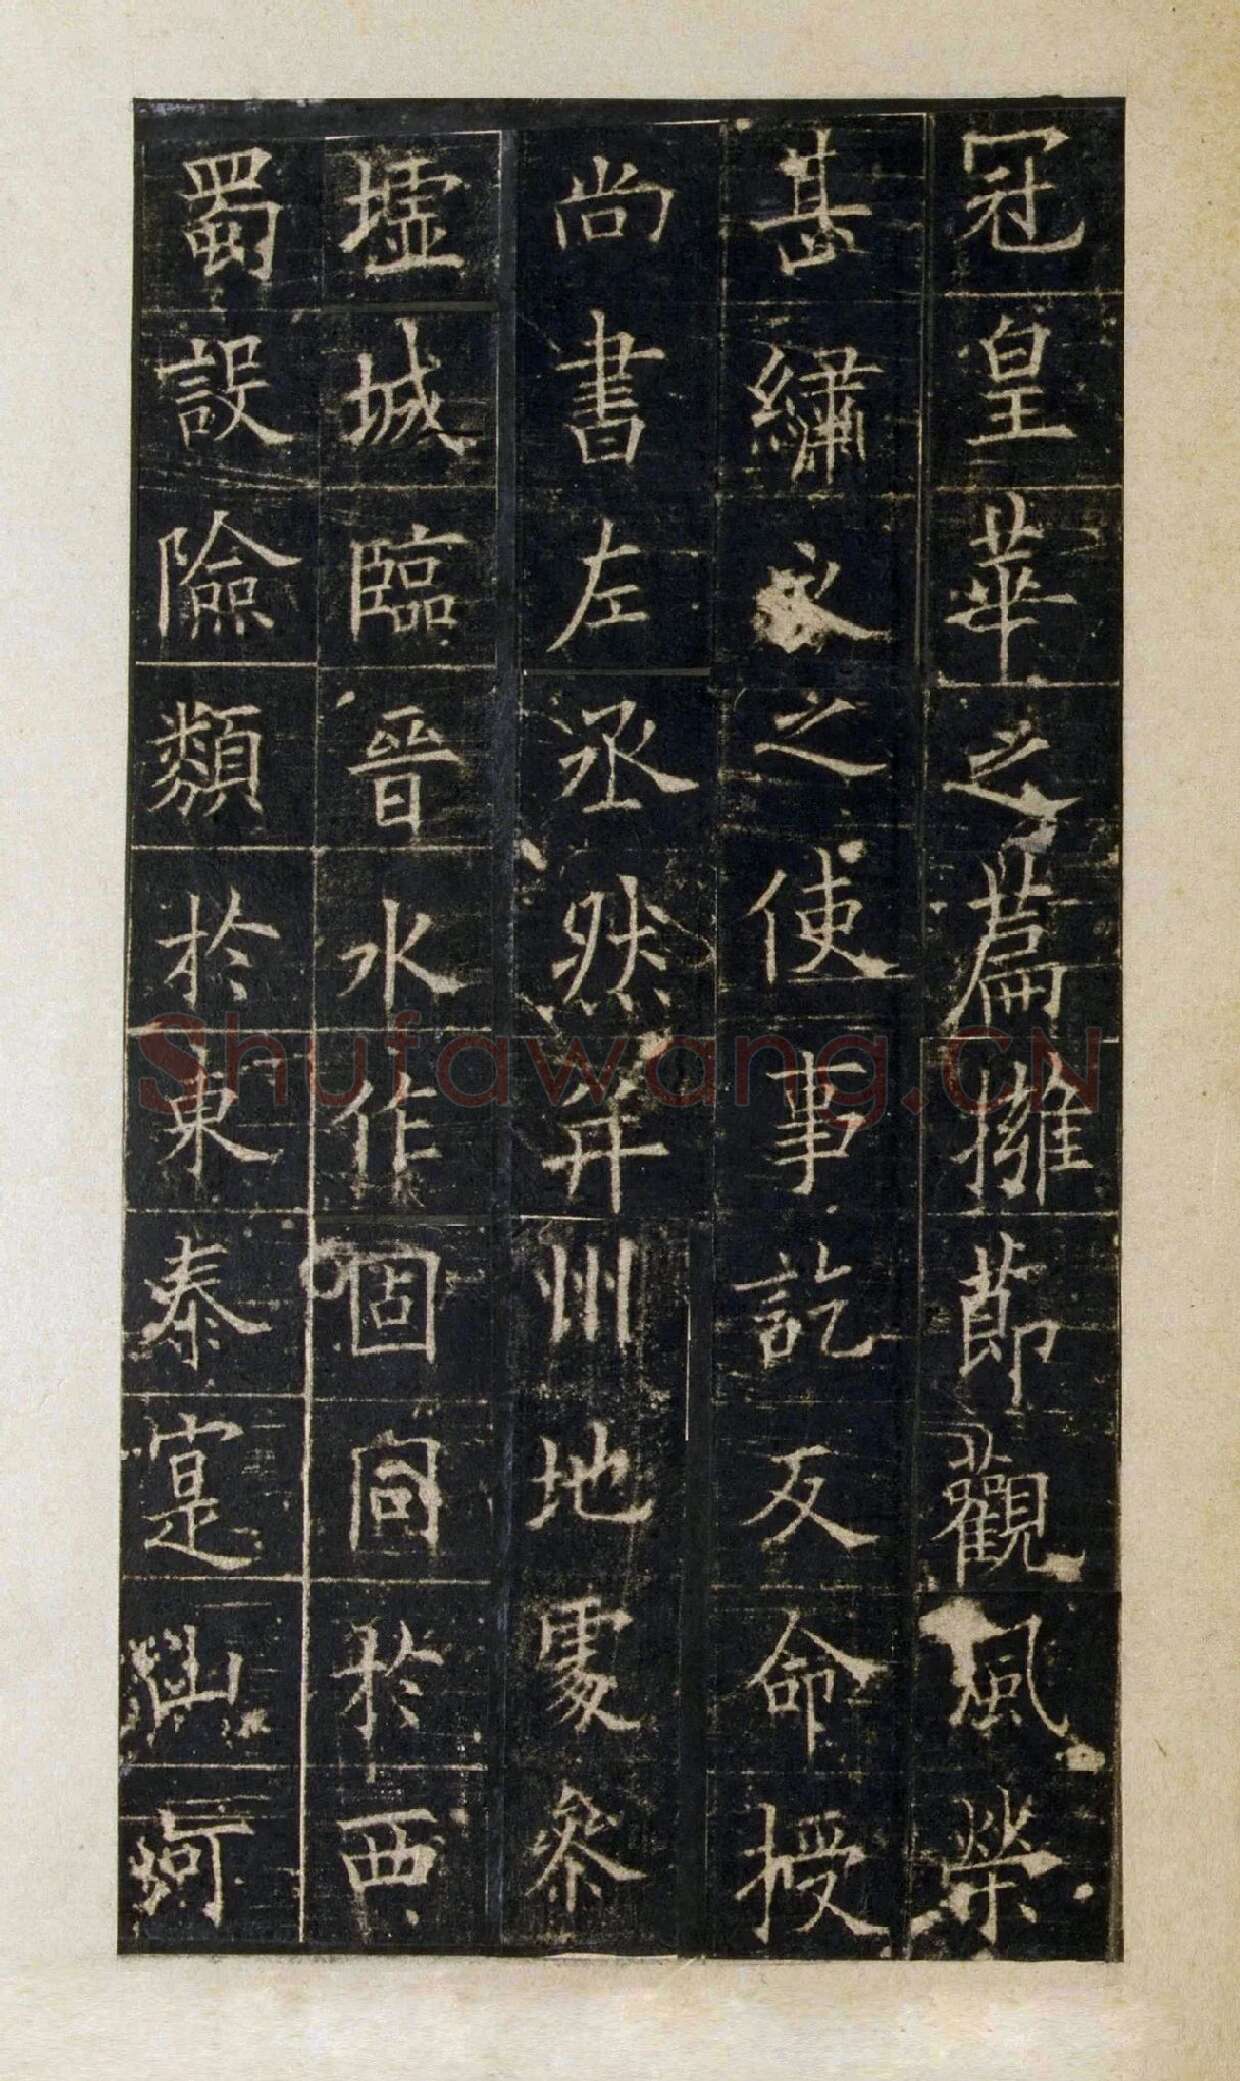 冠皇華之篇擁節觀風榮
甚繡衣之使事訖反命授
尚書左丞然并州地處參
墟城臨晉水作固同於西
蜀設險類於東秦寔山河
Shufawang.CN